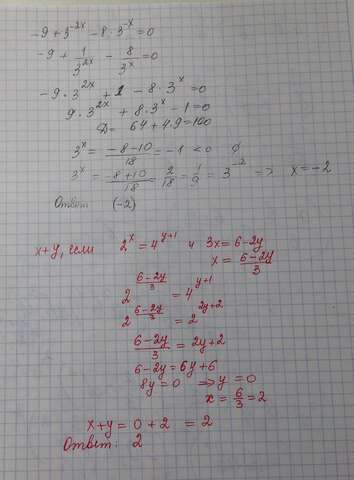 -9+3^{-2x}-8·3^{-x}=0
-9+\frac{1}{3^{2x}}-\frac{8}{3^x}=0
-9·3^{2x}+1-8·3^x=0
9·3^{2x}+8·3^x-1=0
D= 64+4·9=100
3^x=\frac{-8-10}{18}=-1<0 ∅
3^x=\frac{-8+10}{18}=\frac{2}{18}=\frac{1}{9}=3^{-2} => x=-2
Ответ (-2)
x+y, если 2^x=4^{y+1} и 3x=6-2y
x=\frac{6-2y}{3}
2^{\frac{6-2y}{3}}=4^{y+1}
2^{\frac{6-2y}{3}}=2^{2y+2}
\frac{6-2y}{3}=2y+2
6-2y=6y+6
8y=0 =>y=0
x=\frac{6}{3}=2
x+y=0+2=2
Ответ: 2